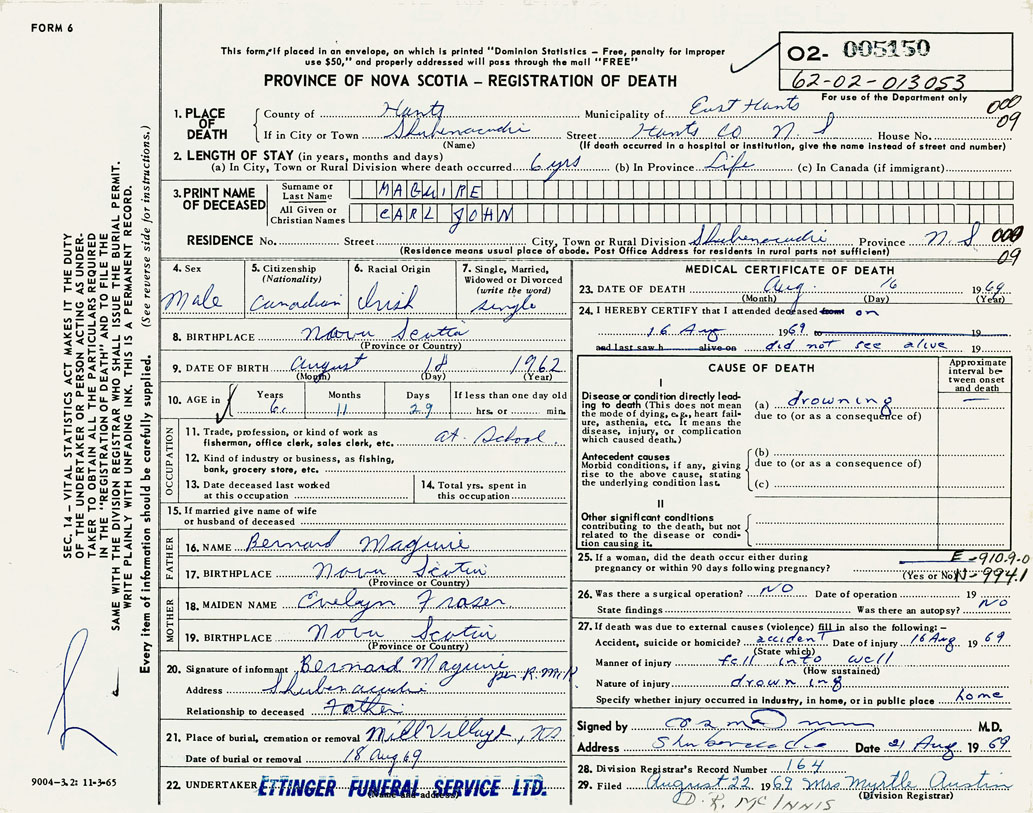 FORM 6
This form, if placed in an envelope, on which is printed "Dominion Statistics – Free, penalty for improper
use $50," and properly addressed will pass through the mail "FREE"
O2- 005150
62-02-013053
For use of the Department only
PROVINCE OF NOVA SCOTIA – REGISTRATION OF DEATH
000
09
1. PLACE OF DEATH
County of Hants Municipality of East Hants
If in City or Town Shubenacadie Street Hants Co N. S House No.
(Name) (If death occurred in a hospital or institution, give the name instead of street and number)
2. LENGTH OF STAY (in years, months and days)
(a) In City, Town or Rural Division where death occurred 6 yrs (b) In Province Life (c) In Canada (if immigrant)
3. PRINT NAME OF DECEASED
Surname or Last Name MAGUIRE
All Given or Christian Names CARL JOHN
RESIDENCE No. Street City, Town or Rural Division Shubenacadie Province N. S 000
09
(Residence means usual place of abode. Post Office Address for residents in rural parts not sufficient)
4. Sex
Male
5. Citizenship
(Nationality)
Canadian
6. Racial Origin
Irish
7. Single, Married,
Widowed or Divorced
(write the word)
single
8. BIRTHPLACE Nova Scotia
(Province or Country)
9. DATE OF BIRTH August 18 1962
(Month) (Day) (Year)
10. AGE in
Years Months Days If less than one day old
6 11 29 hrs. or min.
OCCUPATION
11. Trade, profession, or kind of work as
fisherman, office clerk, sales clerk, etc. at School.
12. Kind of industry or business, as fishing,
bank, grocery store, etc.
13. Date deceased last worked
at this occupation
14. Total yrs. spent in
this occupation
15. If married give name of wife
or husband of deceased
FATHER
16. NAME Bernard Maguire
17. BIRTHPLACE Nova Scotia
(Province or Country)
MOTHER
18. MAIDEN NAME Evelyn Fraser
19. BIRTHPLACE Nova Scotia
(Province or Country)
20. Signature of informant Bernard Maguire
per R. McK
Address Shubenacadie
Relationship to deceased Father
21. Place of burial, cremation or removal Mill Village, NS
Date of burial or removal 18 Aug 69
22. UNDERTAKER ETTINGER FUNERAL SERVICE LTD.
(Name and address)
MEDICAL CERTIFICATE OF DEATH
23. DATE OF DEATH Aug. 16 1969
(Month) (Day) (Year)
24. I HEREBY CERTIFY that I attended deceased from on
16 Aug 1969 to 19
and last saw h alive on did not see alive 19
CAUSE OF DEATH
Approximate
interval be-
tween onset
and death
I
Disease or condition directly lead-
ing to death (This does not mean
the mode of dying, e.g., heart fail-
ure, asthenia, etc. It means the
disease, injury, or complication
which caused death.)
(a) drowning —
due to (or as a consequence of)
Antecedent causes
Morbid conditions, if any, giving
rise to the above cause, stating
the underlying condition last.
(b)
due to (or as a consequence of)
(c)
II
Other significant conditions
contributing to the death, but not
related to the disease or condi-
tion causing it.
25. If a woman, did the death occur either during
pregnancy or within 90 days following pregnancy?
(Yes or No)
E-910.9-0
N-994.1
26. Was there a surgical operation? NO Date of operation 19
State findings Was there an autopsy? NO
27. If death was due to external causes (violence) fill in also the following:–
Accident, suicide or homicide? accident Date of injury 16 Aug 1969
(State which)
Manner of injury fell into well
(How sustained)
Nature of injury drowning
Specify whether injury occurred in Industry, in home, or in public place home
Signed by M.D.
Address Shubenacadie Date 21 Aug 1969
28. Division Registrar's Record Number 164
29. Filed August 22 1969 Mrs Myrtle Austin
(Division Registrar)
D. R. McINNIS
SEC. 14 – VITAL STATISTICS ACT MAKES IT THE DUTY
OF THE UNDERTAKER OR PERSON ACTING AS UNDER-
TAKER TO OBTAIN ALL THE PARTICULARS REQUIRED
IN THE "REGISTRATION OF DEATH" AND TO FILE THE
SAME WITH THE DIVISION REGISTRAR WHO SHALL ISSUE THE BURIAL PERMIT.
WRITE PLAINLY WITH UNFADING INK. THIS IS A PERMANENT RECORD.
Every item of information should be carefully supplied. (See reverse side for instructions.)
9004-3.2: 11-3-65